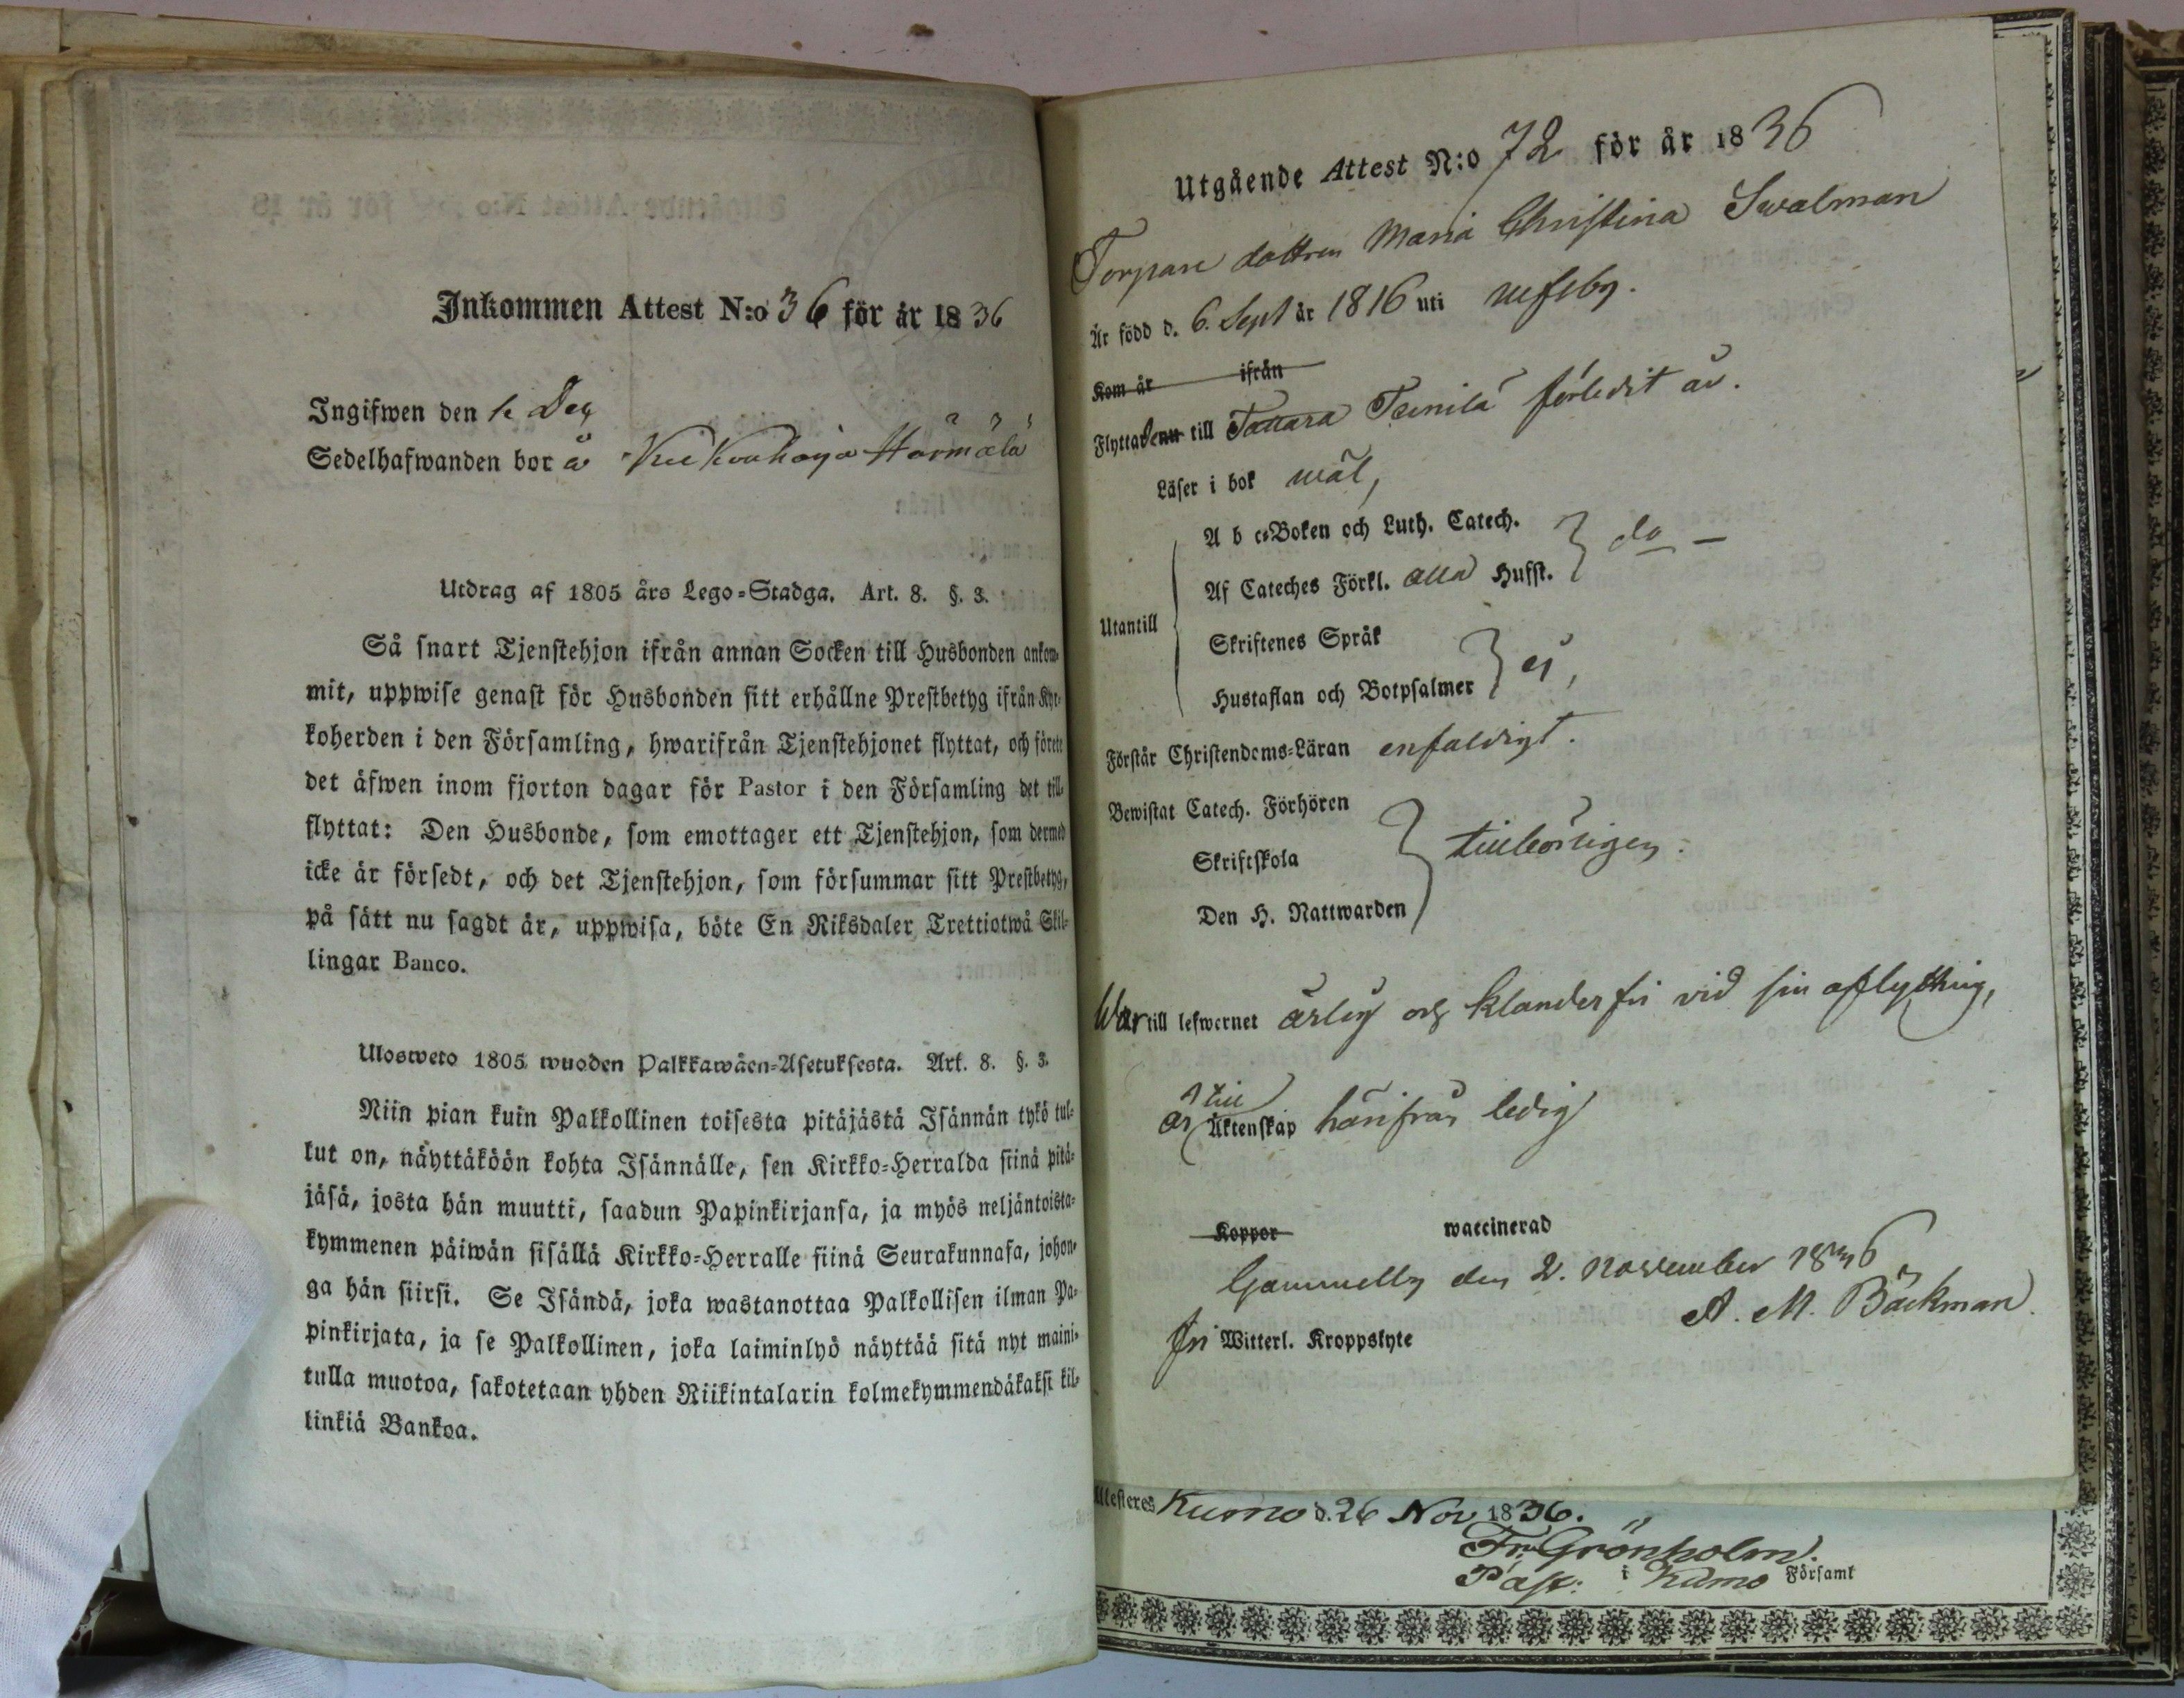 Inkommen Attest N:o 36 för år 1836
Ingifwen den
Sedelhafwanden bor å Härmälä
Utdrag af 1805 års Lego-Stadga. Art. 8. §. 3.
Så snart Tjenstehjon ifrån annan Socken till Husbonden ankom-
mit, uppwise genast för Husbonden sitt erhållne Prestbetyg ifrån Kyr-
koherden i den Församling, hwarifrån Tjenstehjonet flyttat, och förete
det äfwen inom fjorton dagar för Pastor i den Församling det till-
flyttat: Den Husbonde, som emottager ett Tjenstehjon, som dermed
icke är försedt, och det Tjenstehjon, som försummar sitt Prestbetyg,
på sätt nu sagdt är, uppwisa, böte En Riksdaler Trettiotwå Skil-
lingar Banco.
Ulosweto 1805 wuoden Palkkawäen-Asetuksesta. Art. 8. §. 3.
Niin pian kuin Palkollinen toisesta pitäjästä Isännän tykö tul-
lut on, näyttäköön kohta Isännälle, sen Kirkko-Herralda siinä pitä-
jäsä, josta hän muutti, saadun Papinkirjansa, ja myös neljäntoista-
kymmenen päiwän sisällä Kirkko-Herralle siinä Seurakunnasa, johon-
ga hän siirsi. Se Isändä, joka wastanottaa Palkollisen ilman Pa-
pinkirjata, ja se Palkollinen, joka laiminlyö näyttää sitä nyt maini-
tulla muotoa, sakotetaan yhden Riikintalarin kolmekymmendäkaksi kil-
linkiä Bankoa.
Utgående Attest N:o 72 för år 1836
Torpare dottren Maria Christina Swalman
Är född d. 6. Sept år 1816 uti
Kom år ifrån
Flyttade nu till Tattara förledit år.
Läser i bok wäl,
A b c-Boken och Luth. Catech.
Af Cateches Förkl. alla Hufst. } do
Utantill
Skriftenes Språk
Hustaflan och Botpsalmer } ej,
Förstår Christendoms-Läran enfaldigt.
Bewistat Catech. Förhören
Skriftskola } tillbörligen.
Den H. Nattwarden
War till lefwernet ärlig och klanderfri vid sin afflyttning,
är till Äktenskap härifrån ledig
Koppor waccinerad
Gammelby den 2. November 1836
A. M. Bäckman.
fri Witterl. Kroppslyte
Attesteres Kumo d. 26 Nov 1836.
Fr. Grönholm.
Past: i Kumo Församl